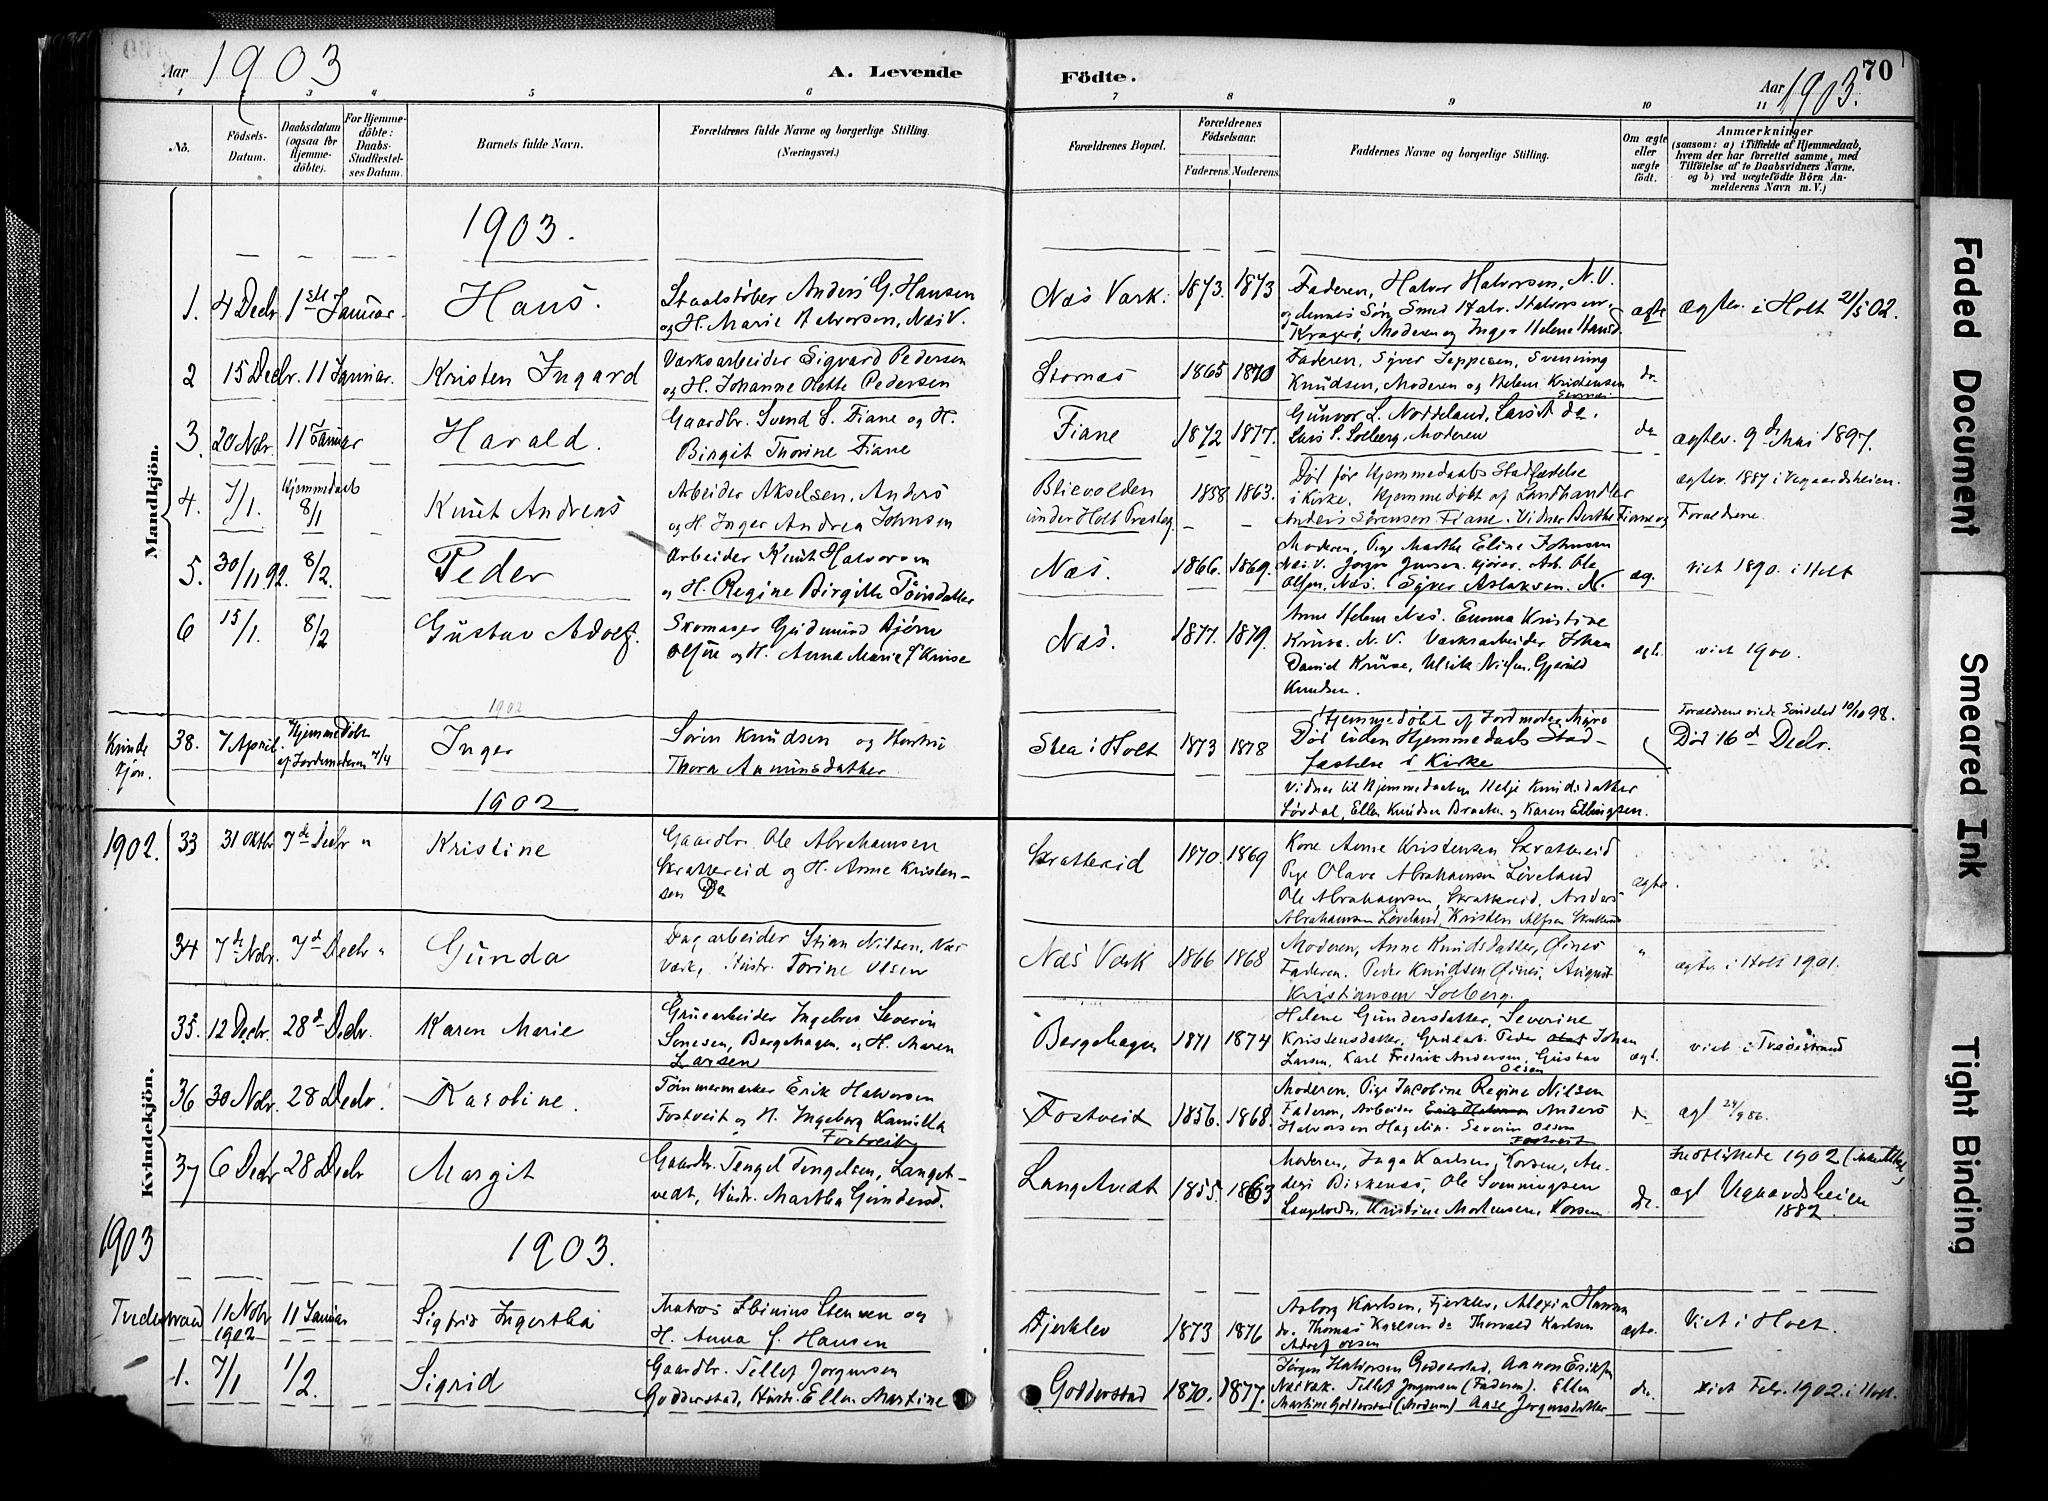 Aar 1903
A. Levende
Födte.
Aar 1903.
70
1 2 3 4 5 6 7 8 9 10 11
No.
Födsels-Datum.
Daabsdatum (ogsaa for Hjemme-döbte).
For Hjemme-döbte: Daabs-Stadfæstel-ses Datum.
Barnets fulde Navn.
Forældrenes fulde Navne og borgerlige Stilling.
(Næringsvei.)
Forældrenes Bopæl.
Forældrenes Födselsaar.
Faderens. Moderens.
Faddernes Navne og borgerlige Stilling.
Om ægte eller uægte födt.
Anmærkninger
(saasom: a) i Tilfælde af Hjemmedaab,
hvem der har forrettet samme, med
Tilföielse af to Daabsvidners Navne.
og b) ved uægtefödte Börn An-
melderens Navn m. V.)
Mandkjön.
1903.
1. 4 Decbr 1ste Januar. Hans.
Staalstøber Anders G. Hansen
og H. Marie Halvorsen, Næs V.
Næs Værk. 1873. 1873
Faderen, Halvor Halvorsen, N.V.
og dennes Søn Smed Halv. Halvorsen,
Kragerø, Moderen og Inger Helene
ægte
ægtev. i Holt 21/5 02.
2 15 Decbr. 11 Januar. Kristen Ingard
Værksarbeider Sigvard Pedersen
og H. Johanne Pedersen
Stornæs 1865 1870
Faderen, Syver Jeppesen, Svenning
Knudsen, Moderen og Helene Kristensen
do
3. 20 Nobr. 11 Januar Harald.
Gaardbr. Svend S. Fiane og H.
Birgit Thorine Fiane
Fiane 1872 1877.
Gunvor L. Noddeland, Lars do.
Lars P. Solberg, Moderen
do
ægtev. 9de Mai 1897.
4. 7/1. Hjemmedaab 8/1 Knut Andreas
Arbeider Akselsen, Anders
og H. Inger Andrea Johnsen
Blievolden
under Holt Presteg.
1858 1863.
Død før Hjemmedaabs Stadfæstelse
i Kirke. Hjemmedøbt af Landhandler
Anders Sørensen Fiane. Vidner Berthe Fiane og
ægtev. 1887 i Vegaardsheien.
Forældrene.
5. 30/11 92. 8/2. Peder
Arbeider Knut Halvorsen
og H. Regine Birgitte
Næs. 1866. 1869.
Moderen, Pige Marthe Eline Johnsen
Næs V. Jørgen Jensen Arb. Ole
Olsen, Næs. Syver Aslaksen. N.
æg.
viet 1890. i Holt
6 15/1. 8/2 Gustav Adolf.
Skomager Gudmund Bjørn
og H. Anna Marie Kruse
Næs. 1877. 1879.
Anne Helene Næs. Emma Kristine
Kruse. N.V. Værksarbeider Johan
David Kruse, Ulrik Nielsen,
Knudsen.
ægt.
viet 1900.
1902
Kvinde
kjön.
38. 7 April. Hjemmedøbt
af Jordemoderen 7/4
Inger
Søren Knudsen og Hustru
Thora
Stea i Holt 1873 1878
Hjemmedøbt af Jordmoder
Død uden Hjemmedaabs Stad-
fæstelse i Kirke
Forældrene viede Søndeled 10/10 98.
Død 16d Decbr.
1902
Vidner til Hjemmedaaben Helje Knudsdatter
Løvdal, Ellen Knudsen Braaten og Karen Ellingsen.
Kvindekjön.
1902. 33 31 Oktbr 7de Decbr " Kristine
Gaardbr. Ole Abrahamsen
Skrattereid og H. Anne Kristen-
sen Do
Skrattereid 1870. 1869
Kone Anne Kristensen Skrattereid
Pige Olave Abrahamsen Løveland
Ole Abrahamsen, Skrattereid, Anders
Abrahamsen Løveland, Kristen Alfsen
ægte.
34 7de Nobr. 7d Decbr " Gunda
Stian Nilsen, Næs
Værk, Hustr. Torine Olsen
Næs Værk 1866 1868
Moderen, Anne Knudsdatter, Øines
Faderen. Peder Knudsen Øines, August
Kristiansen Solberg.
"
ægtev. i Holt 1901.
35 12 Decbr. 28d Decbr. Karen Marie
Grubearbeider Ingebret Severin
Bergehagen, og H. Maren
Larsen
Bergehagen 1871 1874
Helene Gundersdatter, Severine
Kristensdatter, Grubearb. Peder Johan
Larsen, Karl Fredrik Andersen, Gustav
Olsen
ægt.
viet i Tvedestrand
36 30 Nobr. 28 Decbr. Karoline.
Tømmermærker Erik Halvorsen
Fostveit og H. Ingeborg Kamilla
Fostveit
Fostveit 1856. 1868.
Moderen, Pige Jacobine Regine Nilsen
Faderen, Arbeider Anders
Halvorsen Severin Olsen
Fostveit
do
ægt 24/9 86.
37 6 Decbr 28 Decbr Margit
Gaardbr. Tengel Tengelsen, Langt-
vedt, Hustr. Martha
Langtvedt 1855. 1863
Moderen, Inga Karlsen, Korsen, An-
ders Birkenæs, Ole Svenningsen
Langtvedt, Kristine Mortensen, Korsen
do.
1902
ægt Vegaardsheien
1882.
1903
1903.
Tvedestrand 11 Nobr
1902
11 Januar Sigfrid Ingertha
Matros og
H. Anna Hansen
Djerklev 1873 1876
Aslborg Karlsen, Alexia Hansen
do. Thomas Karlsen do Thorvald Karlsen
Adref Olsen
ægte.
Viet i Holt.
1. 7/1 1/2. Sigrid
Gaardbr. Tellef Jorgensen
Godderstad, Hustr. Ellen Martine
Godderstad 1870. 1877.
Jørgen Halvorsen Godderstad, Aanon Eriksen
Næsvæk. Tellef Jørgensen (Faderen). Ellen
Martine Godderstad (Moderen) Aase Jorgensdatter
do.
viet Febr. 1902. i Holt.
Faded Document
Smeared Ink
Tight Binding